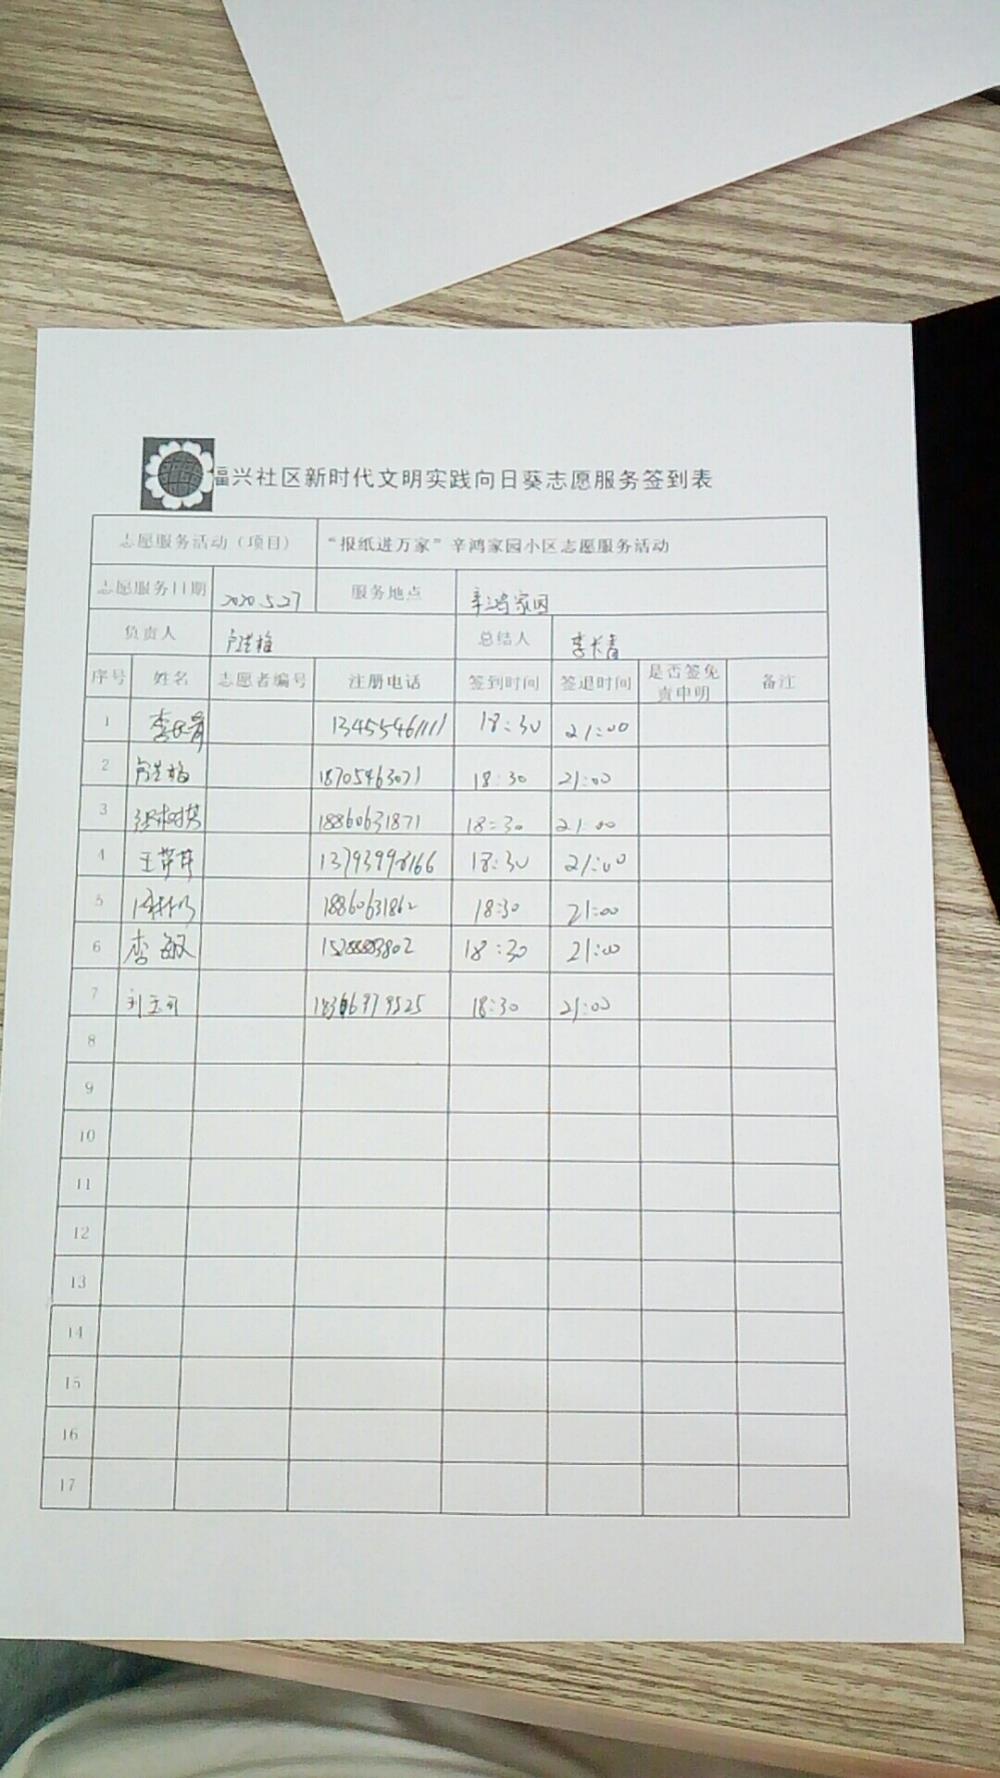 福兴社区新时代文明实践向日葵志愿服务签到表
志愿服务活动（项目） “报纸进万家”辛鸿家园小区志愿服务活动
志愿服务日期 2020.5.27 服务地点 辛鸿家园
负责人 总结人 李长青
序号 姓名 志愿者编号 注册电话 签到时间 签退时间 是否签免责申明 备注
1 李长青 13455461111 18:30 21:00
2 18705463071 18:30 21:00
3 18860631871 18:30 21:00
4 王芹芹 13793998166 18:30 21:00
5 18860631862 18:30 21:00
6 李敏 18:30 21:00
7 18:30 21:00
8
9
10
11
12
13
14
15
16
17